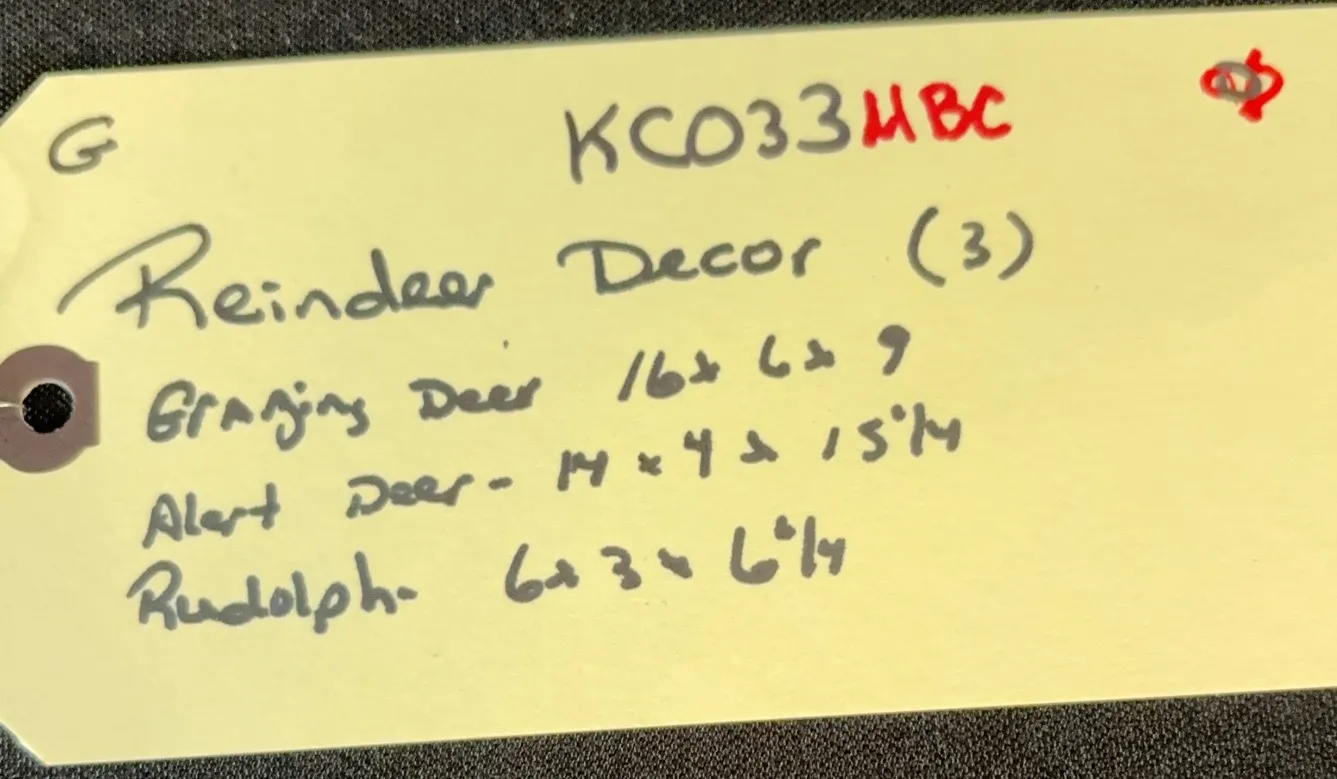 G KC033MBC
Reindeer Decor (3)
Grazing Deer 16x 6x 9
Alert Deer- 14 x 4 x 15 1/4
Rudolph- 6x 3 x 6 1/4